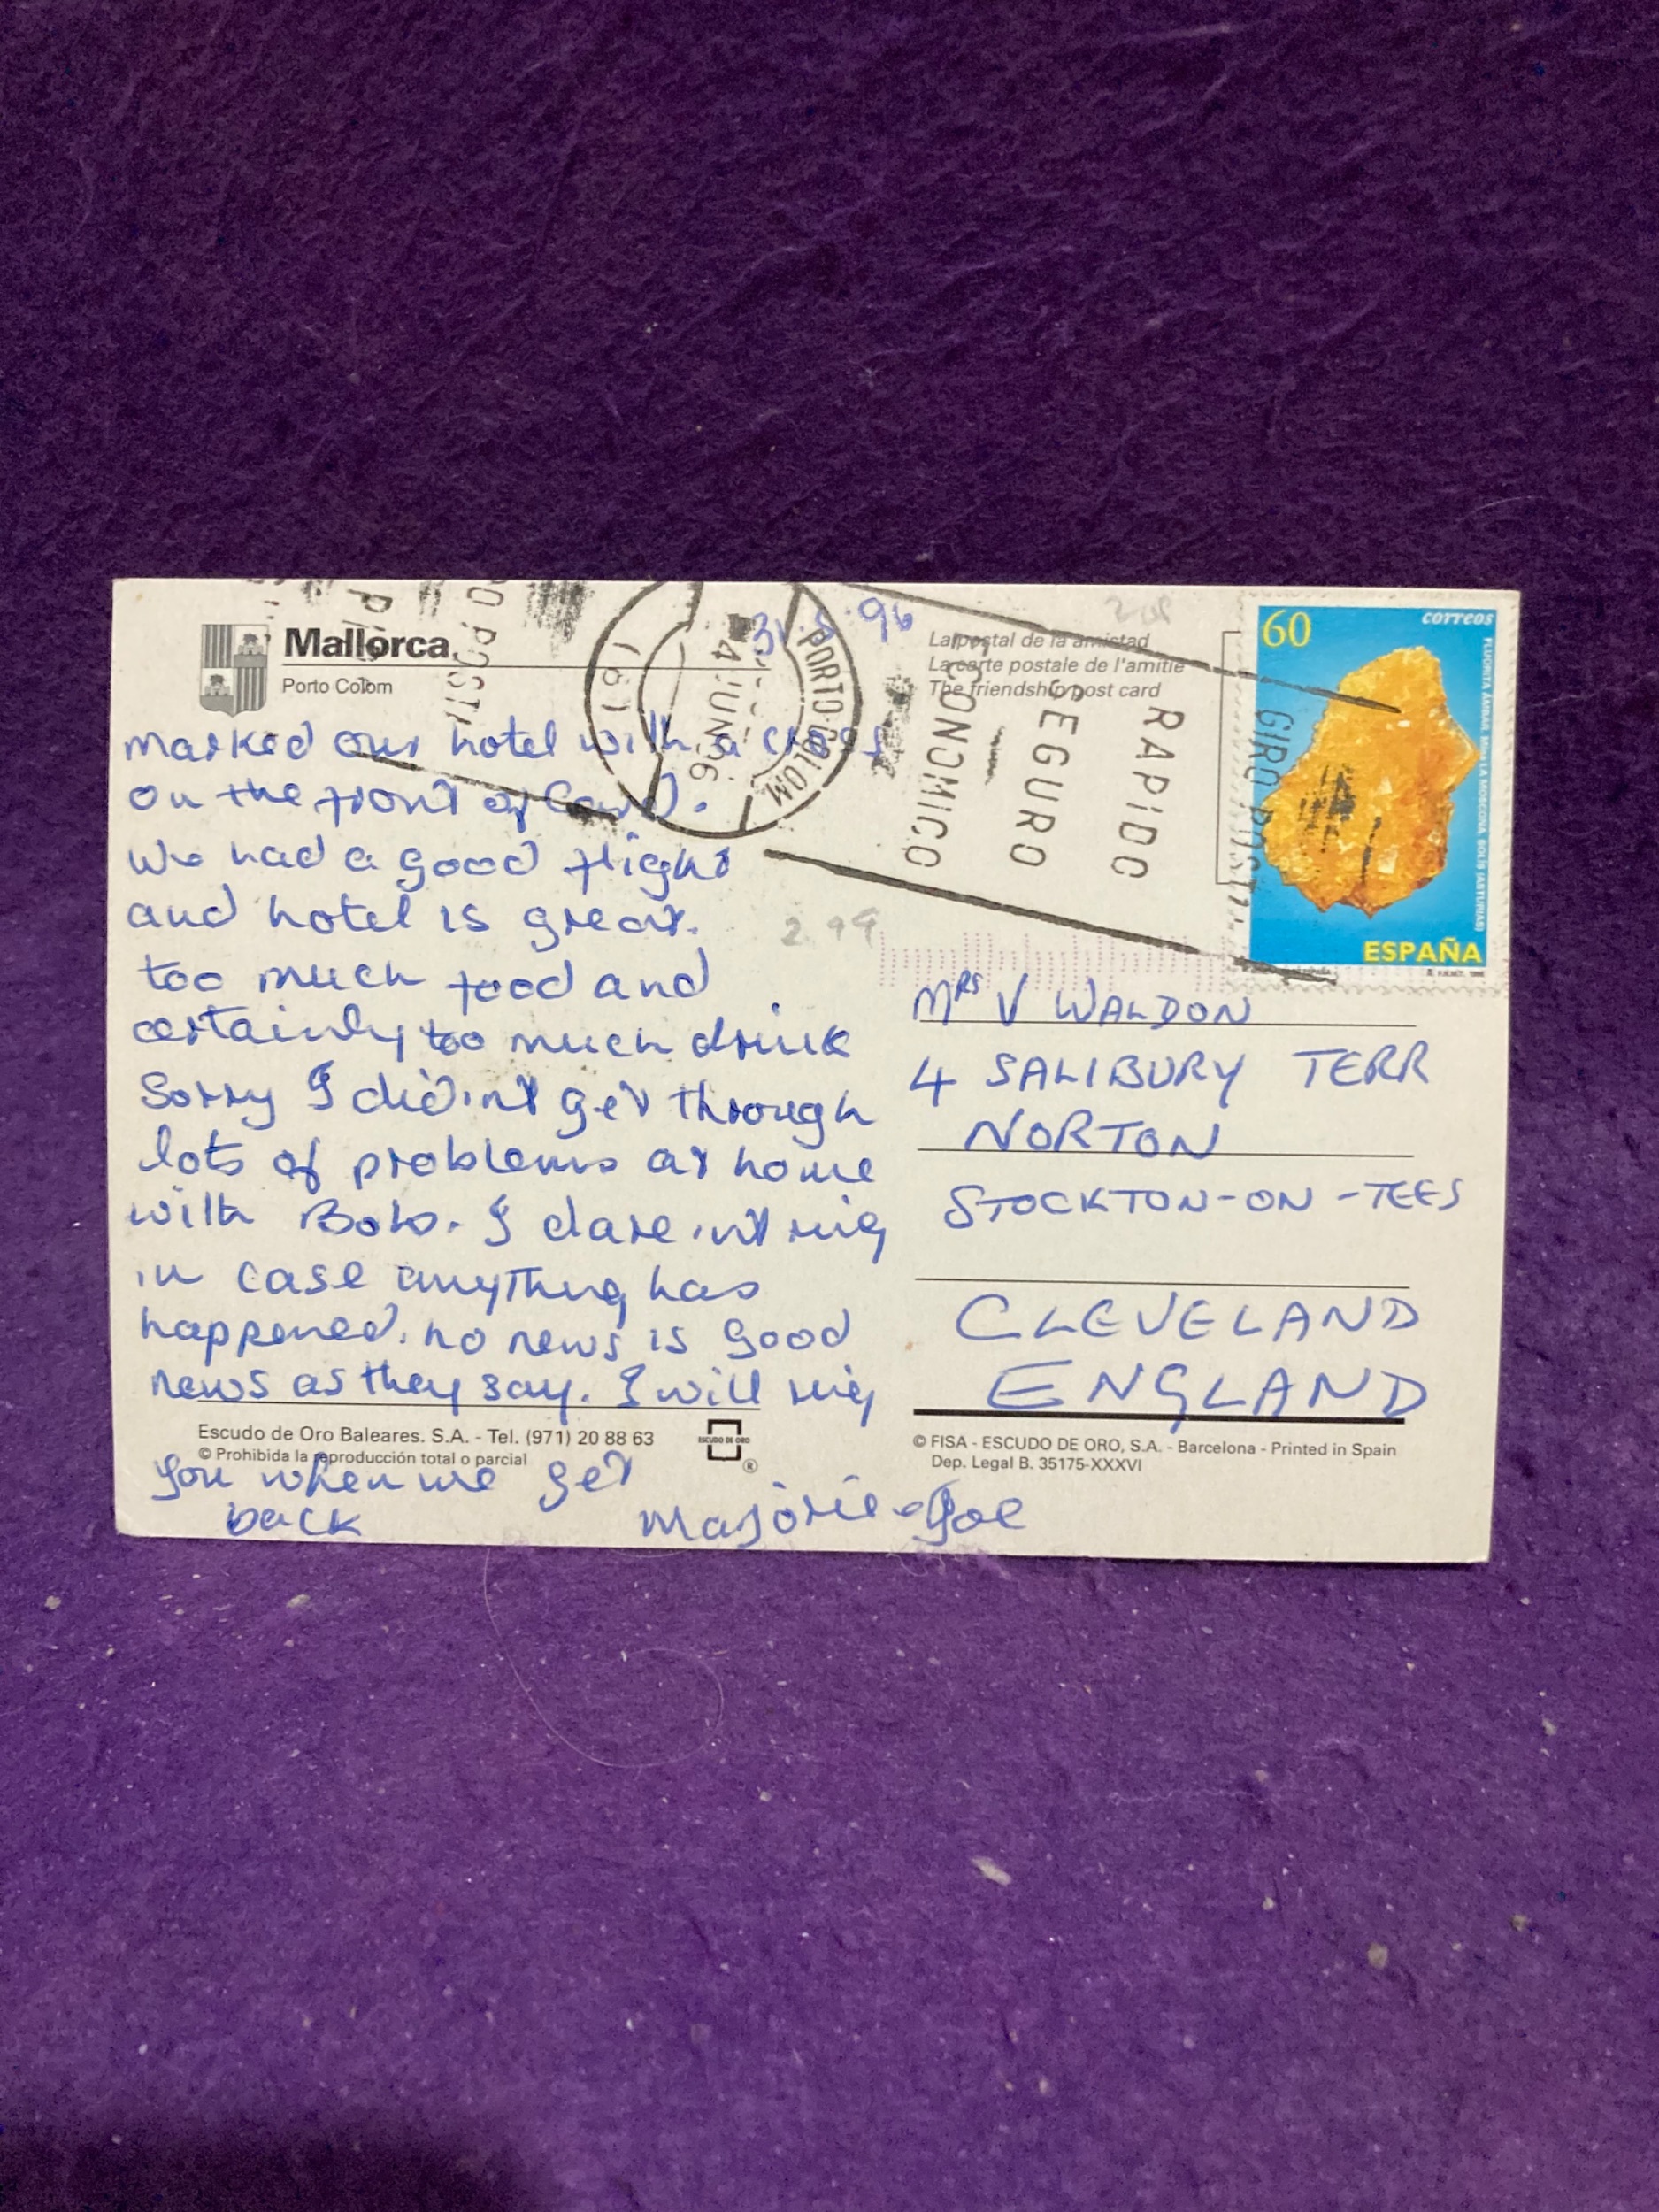 Mallorca
Porto Colom
31.5.96
marked our hotel with a cross
on the front of Card.
We had a good flight
and hotel is great.
too much food and
certainly too much drink
Sorry I did.int get through
lots of problems at home
with Bob. I dare.int ring
in case anything has
happened. no news is good
news as they say. I will ring
you when we get
back
Marjorie + Joe
Escudo de Oro Baleares. S.A. - Tel. (971) 20 88 63
© Prohibida la reproducción total o parcial
ESCUDO DE ORO
®
PORTO-COLOM
4 JUN 96
La postal de la amistad
La carte postale de l'amitie
The friendship post card
GIRO POSTAL
RAPIDO
SEGURO
ECONOMICO
2.99
60
correos
FLUORITA AMBAR. MINA LA MOSCONA. SOLÍS (ASTURIAS)
ESPAÑA
Mrs V WALDON
4 SALIBURY TERR
NORTON
STOCKTON-ON-TEES
CLEVELAND
ENGLAND
© FISA - ESCUDO DE ORO, S.A. - Barcelona - Printed in Spain
Dep. Legal B. 35175-XXXVI